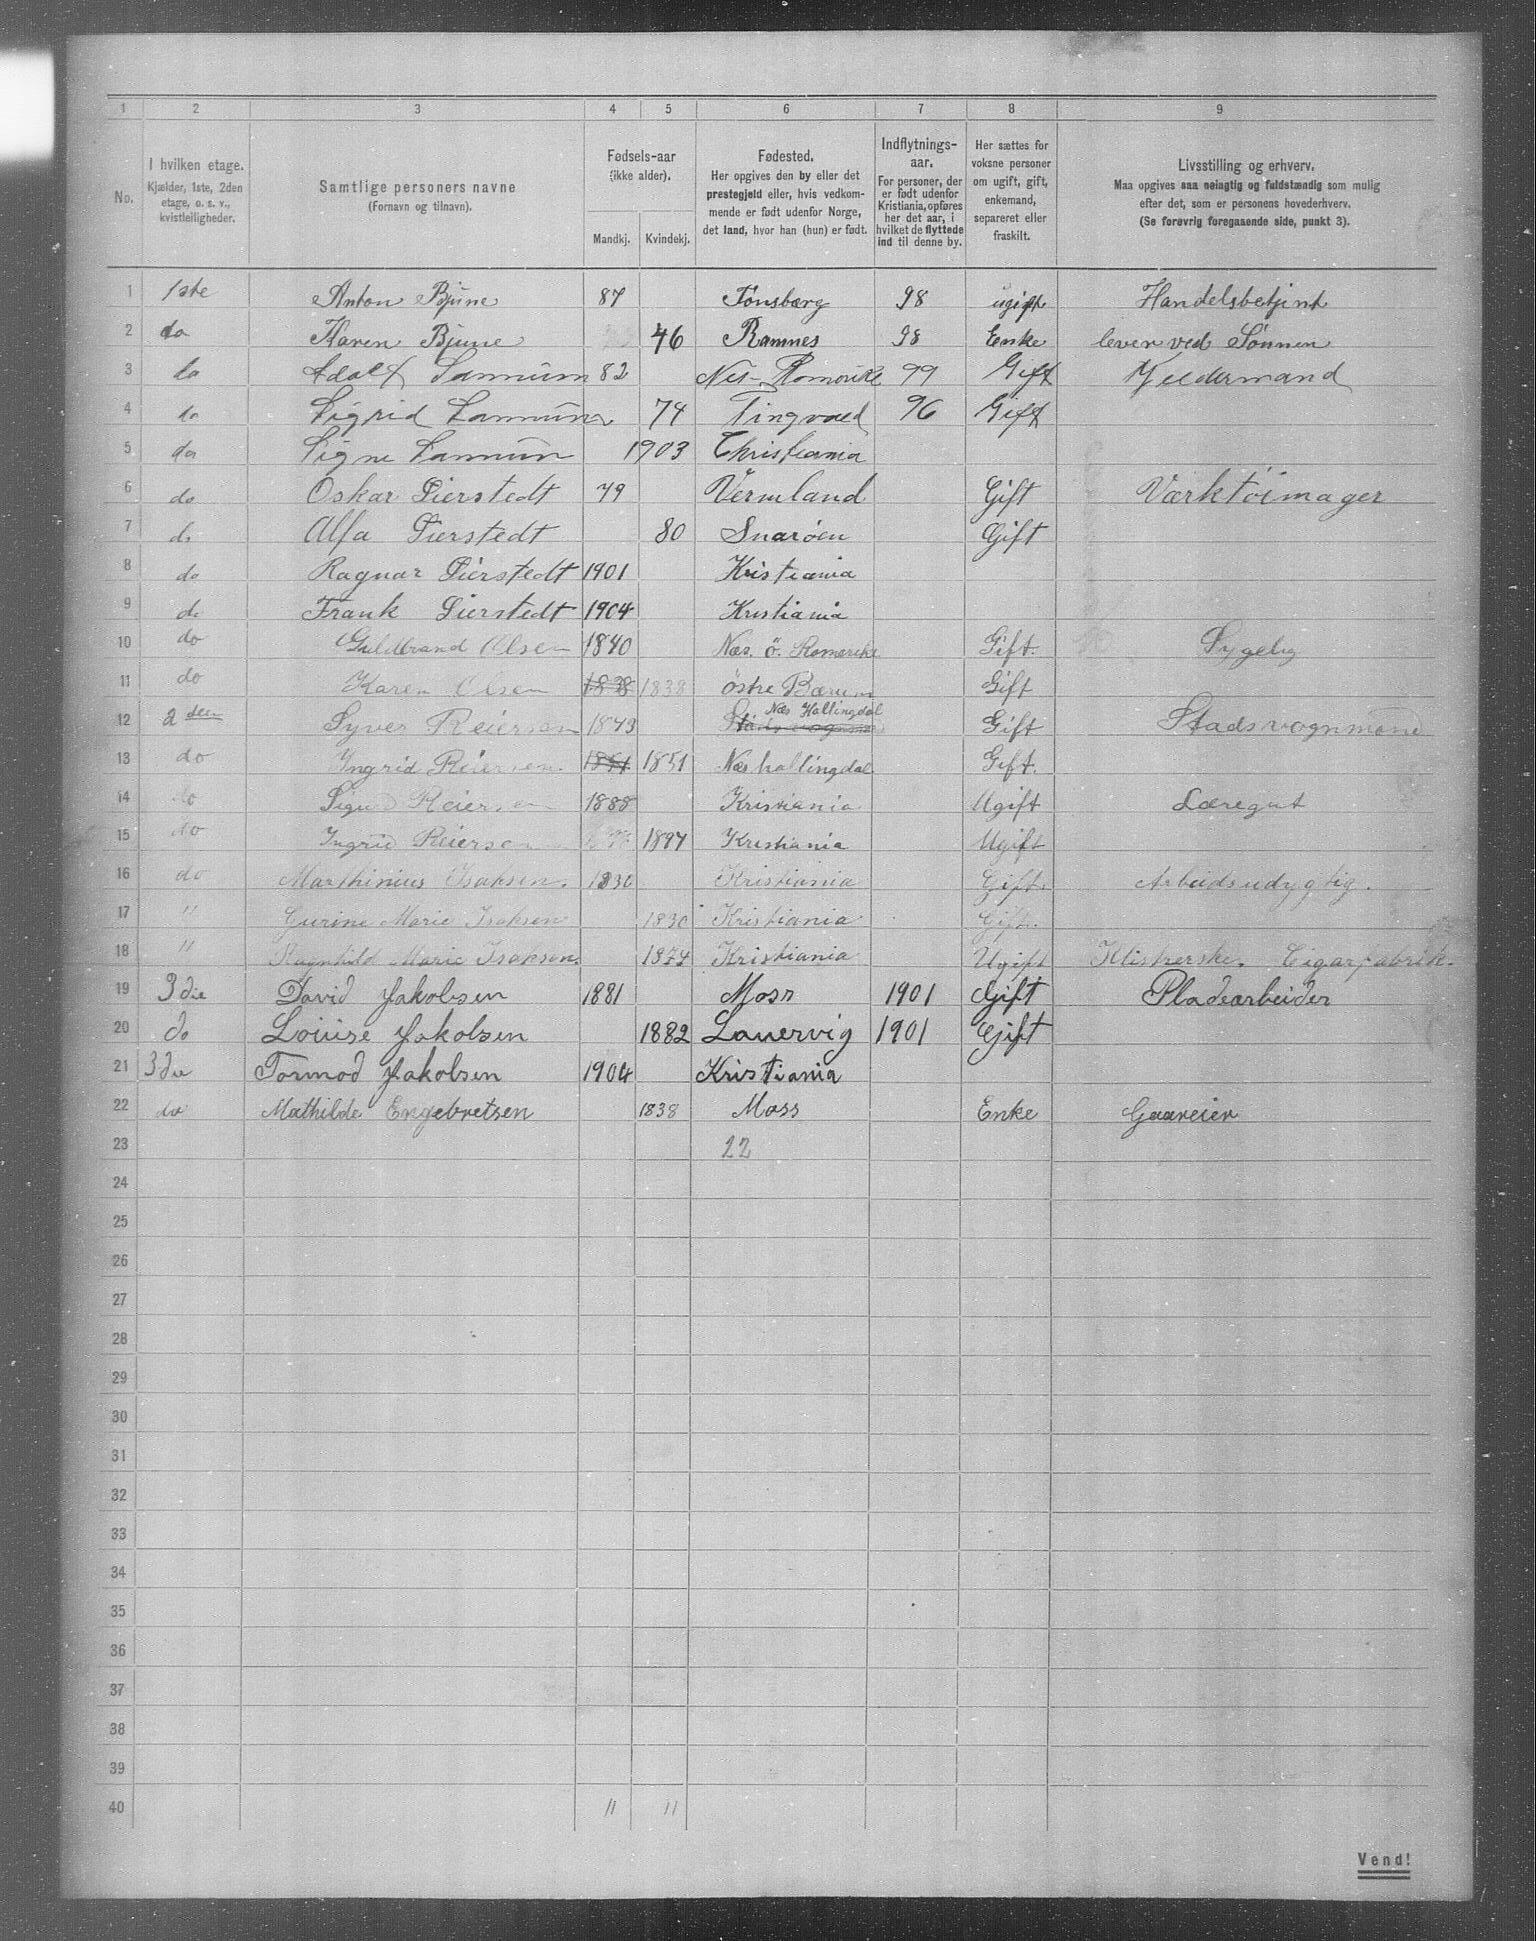 1 2 3 4 5 6 7 8 9
No. I hvilken etage. Kjælder, 1ste, 2den etage, o. s. v., kvistleiligheder. Samtlige personers navne (Fornavn og tilnavn). Fødsels-aar (ikke alder). Mandkj. Kvindekj. Fødested. Her opgives den by eller det prestegjeld eller, hvis vedkommende er født udenfor Norge, det land, hvor han (hun) er født. Indflytnings-aar. For personer, der er født udenfor Kristiania, opføres her det aar, i hvilket de flyttede ind til denne by. Her sættes for voksne personer om ugift, gift, enkemand, separeret eller fraskilt. Livsstilling og erhverv. Maa opgives saa nøiagtig og fuldstændig som mulig efter det, som er personens hovederhverv. (Se forøvrig foregaaende side, punkt 3).
1 1ste Anton Bjune 87 Tønsberg 98 ugift Handelsbetjent
2 do Karen Bjune 46 Ramnes 98 Enke lever ved Sønnen
3 do Adolf 82 Nes-Romerike 99 Gift
4 do Sigrid 74 Tingvold 96 Gift
5 do Signe 1903 Christiania
6 do Oskar Dierstedt 79 Vermland Gift Værktöimager
7 do Alfa Dierstedt 80 Snarøen Gift
8 do Ragnar Dierstedt 1901 Kristiania
9 do Frank Dierstedt 1904 Kristiania
10 do Guldbrand Olsen 1840 Næs. ö. Romerike Gift. Sygelig
11 do Karen Olsen 1838 1838 östre Bærum Gift
12 2den Syver Reiersen 1843 Næs Hallingdal Gift Stadsvognmand
13 do Ingrid Reiersen 1851 1851 Næs hallingdal Gift.
14 do Sigurd Reiersen 1888 Kristiania Ugift Læregut
15 do Ingrid Reiersen 1897 Kristiania Ugift
16 do Marthinius Isaksen. 1830 Kristiania Gift. Arbeidsudygtig.
17 " Gurine Marie Isaksen 1830 Kristiania Gift.
18 " Ragnhild Marie Isaksen. 1874 Kristiania Ugift Klistrerske. Cigarfabrik.
19 3die David Jakobsen 1881 Moss 1901 Gift Pladearbeider
20 do Louise Jakobsen 1882 Laurvig 1901 Gift
21 3die Tormod Jakobsen 1904 Kristiania
22 do Mathilde Engebretsen 1838 Moss Enke Gaareier
23 22
24
25
26
27
28
29
30
31
32
33
34
35
36
37
38
39
40 11 11
Vend!